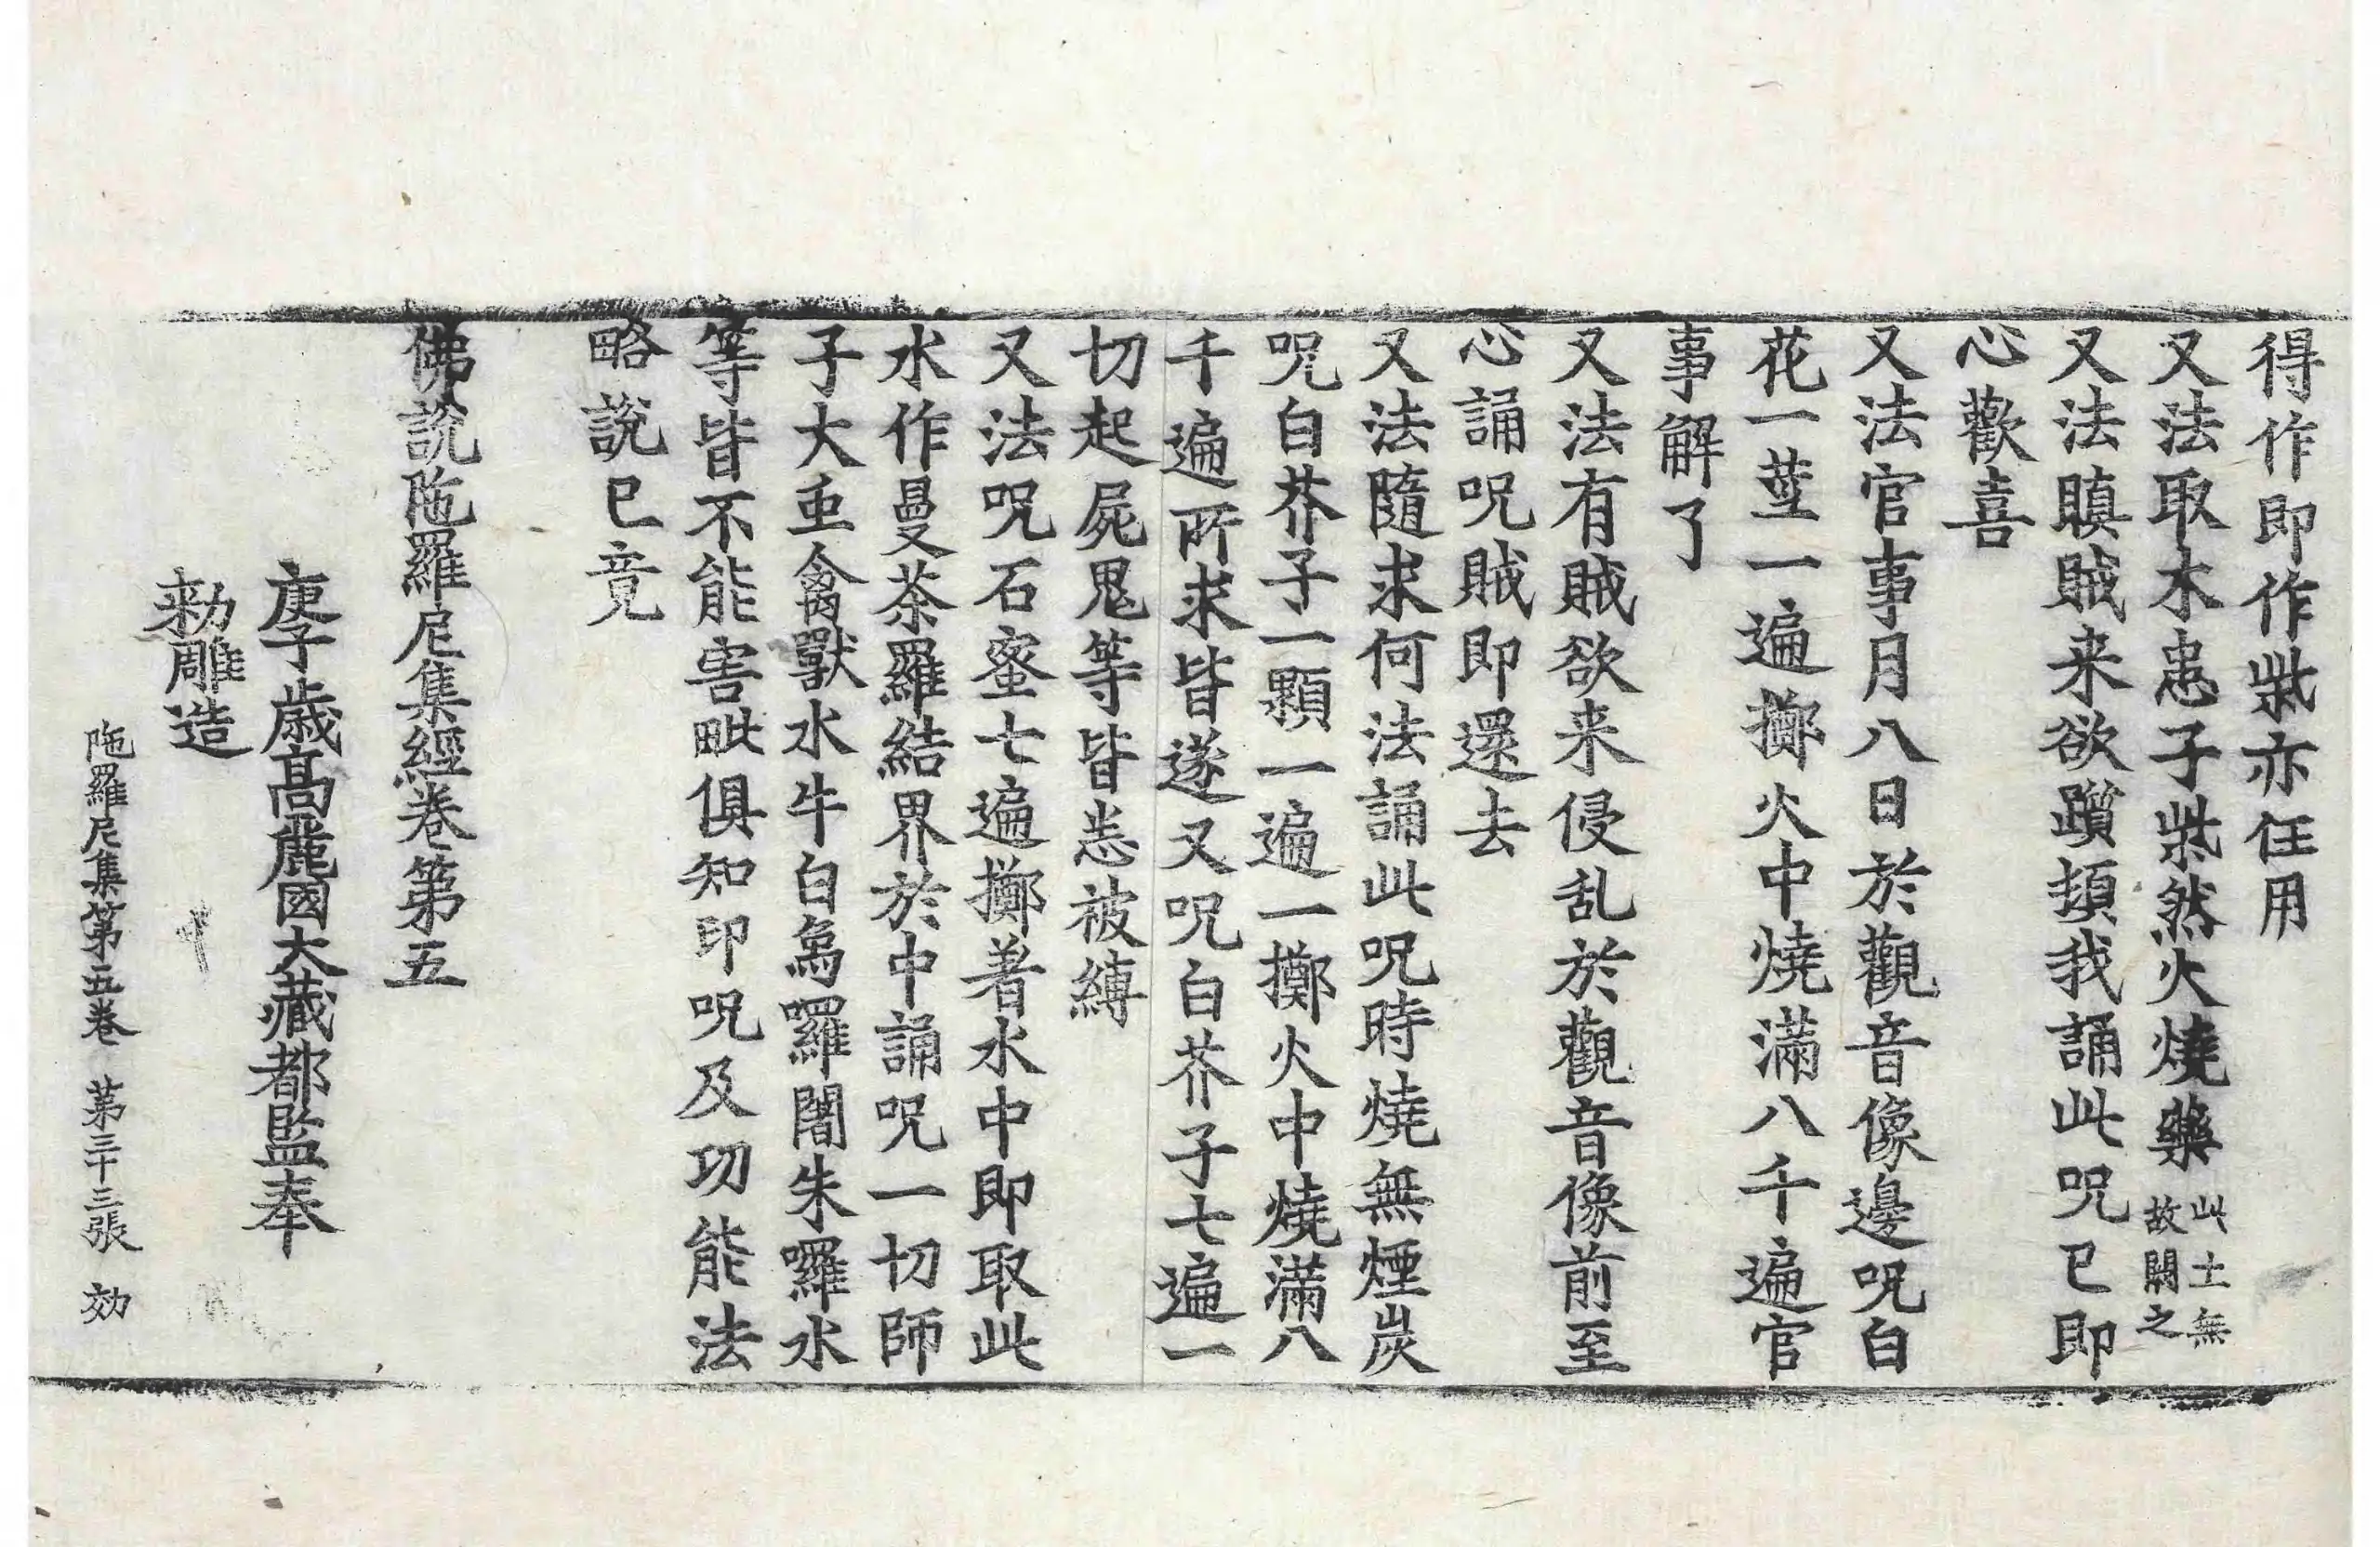 得作即作柴亦任用
又法取木患子柴然火燒藥此土無故闕之
又法瞋賊来欲躓頓我誦此呪已即
心歡喜
又法官事月八日於觀音像邊呪白
花一莖一遍擲火中燒滿八千遍官
事解了
又法有賊欲来侵乱於觀音像前至
心誦呪賊即還去
又法隨求何法誦此呪時燒無煙炭
呪白芥子一顆一遍一擲火中燒滿八
千遍所求皆遂又呪白芥子七遍一
切起屍鬼等皆悉被縛
又法呪石蜜七遍擲著水中即取此
水作曼荼羅結界於中誦呪一切師
子大虫禽獸水牛白烏囉羅闍朱囉水
等皆不能害毗俱知印呪及功能法
略說已竟
佛說陁羅尼集經卷第五
庚子歲高麗國大藏都監奉
勑雕造
陁羅尼集第五卷 第三十三張 効